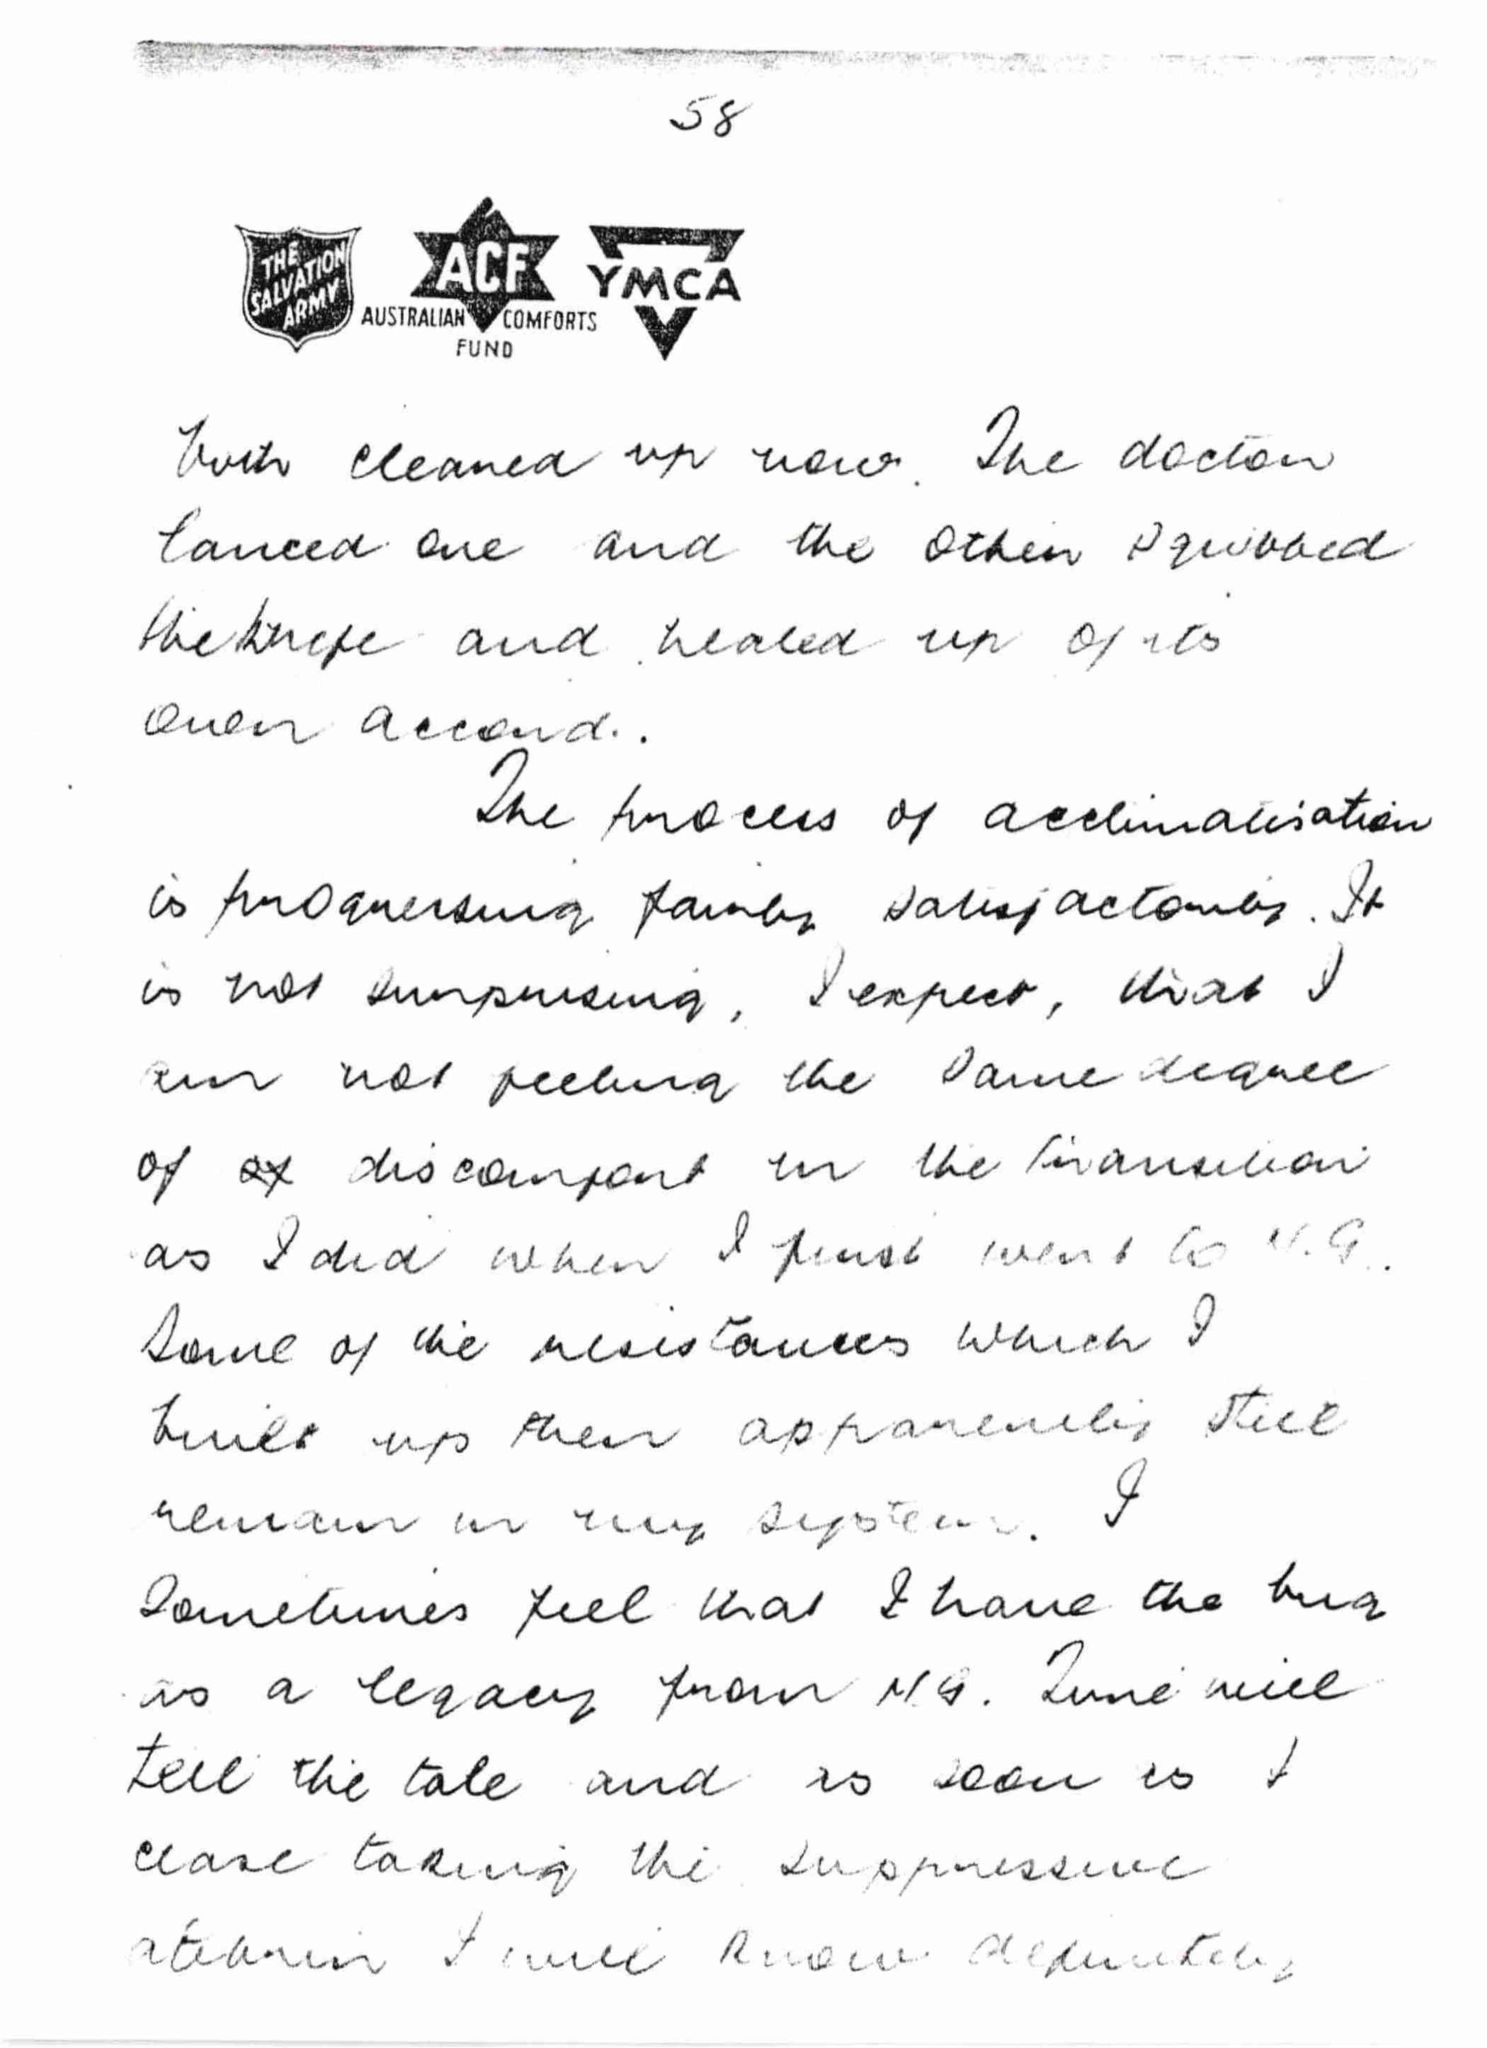 58
THE SALVATION ARMY
ACF
AUSTRALIAN COMFORTS FUND
YMCA
both cleaned up now. The doctor
lanced one and the other
the knife and healed up of its
own accord..
The process of acclimatisation
is progressing fairly satisfactorily. It
is not surprising, I expect, that I
am not feeling the same degree
of of discomfort in the transition
as I did when I first went to N.G..
Some of the resistances which I
built up then apparently still
remain in my system. I
sometimes feel that I have the bug
as a legacy from N.G. Time will
tell the tale and as soon as I
cease taking the suppressive
atebrin I will know definitely